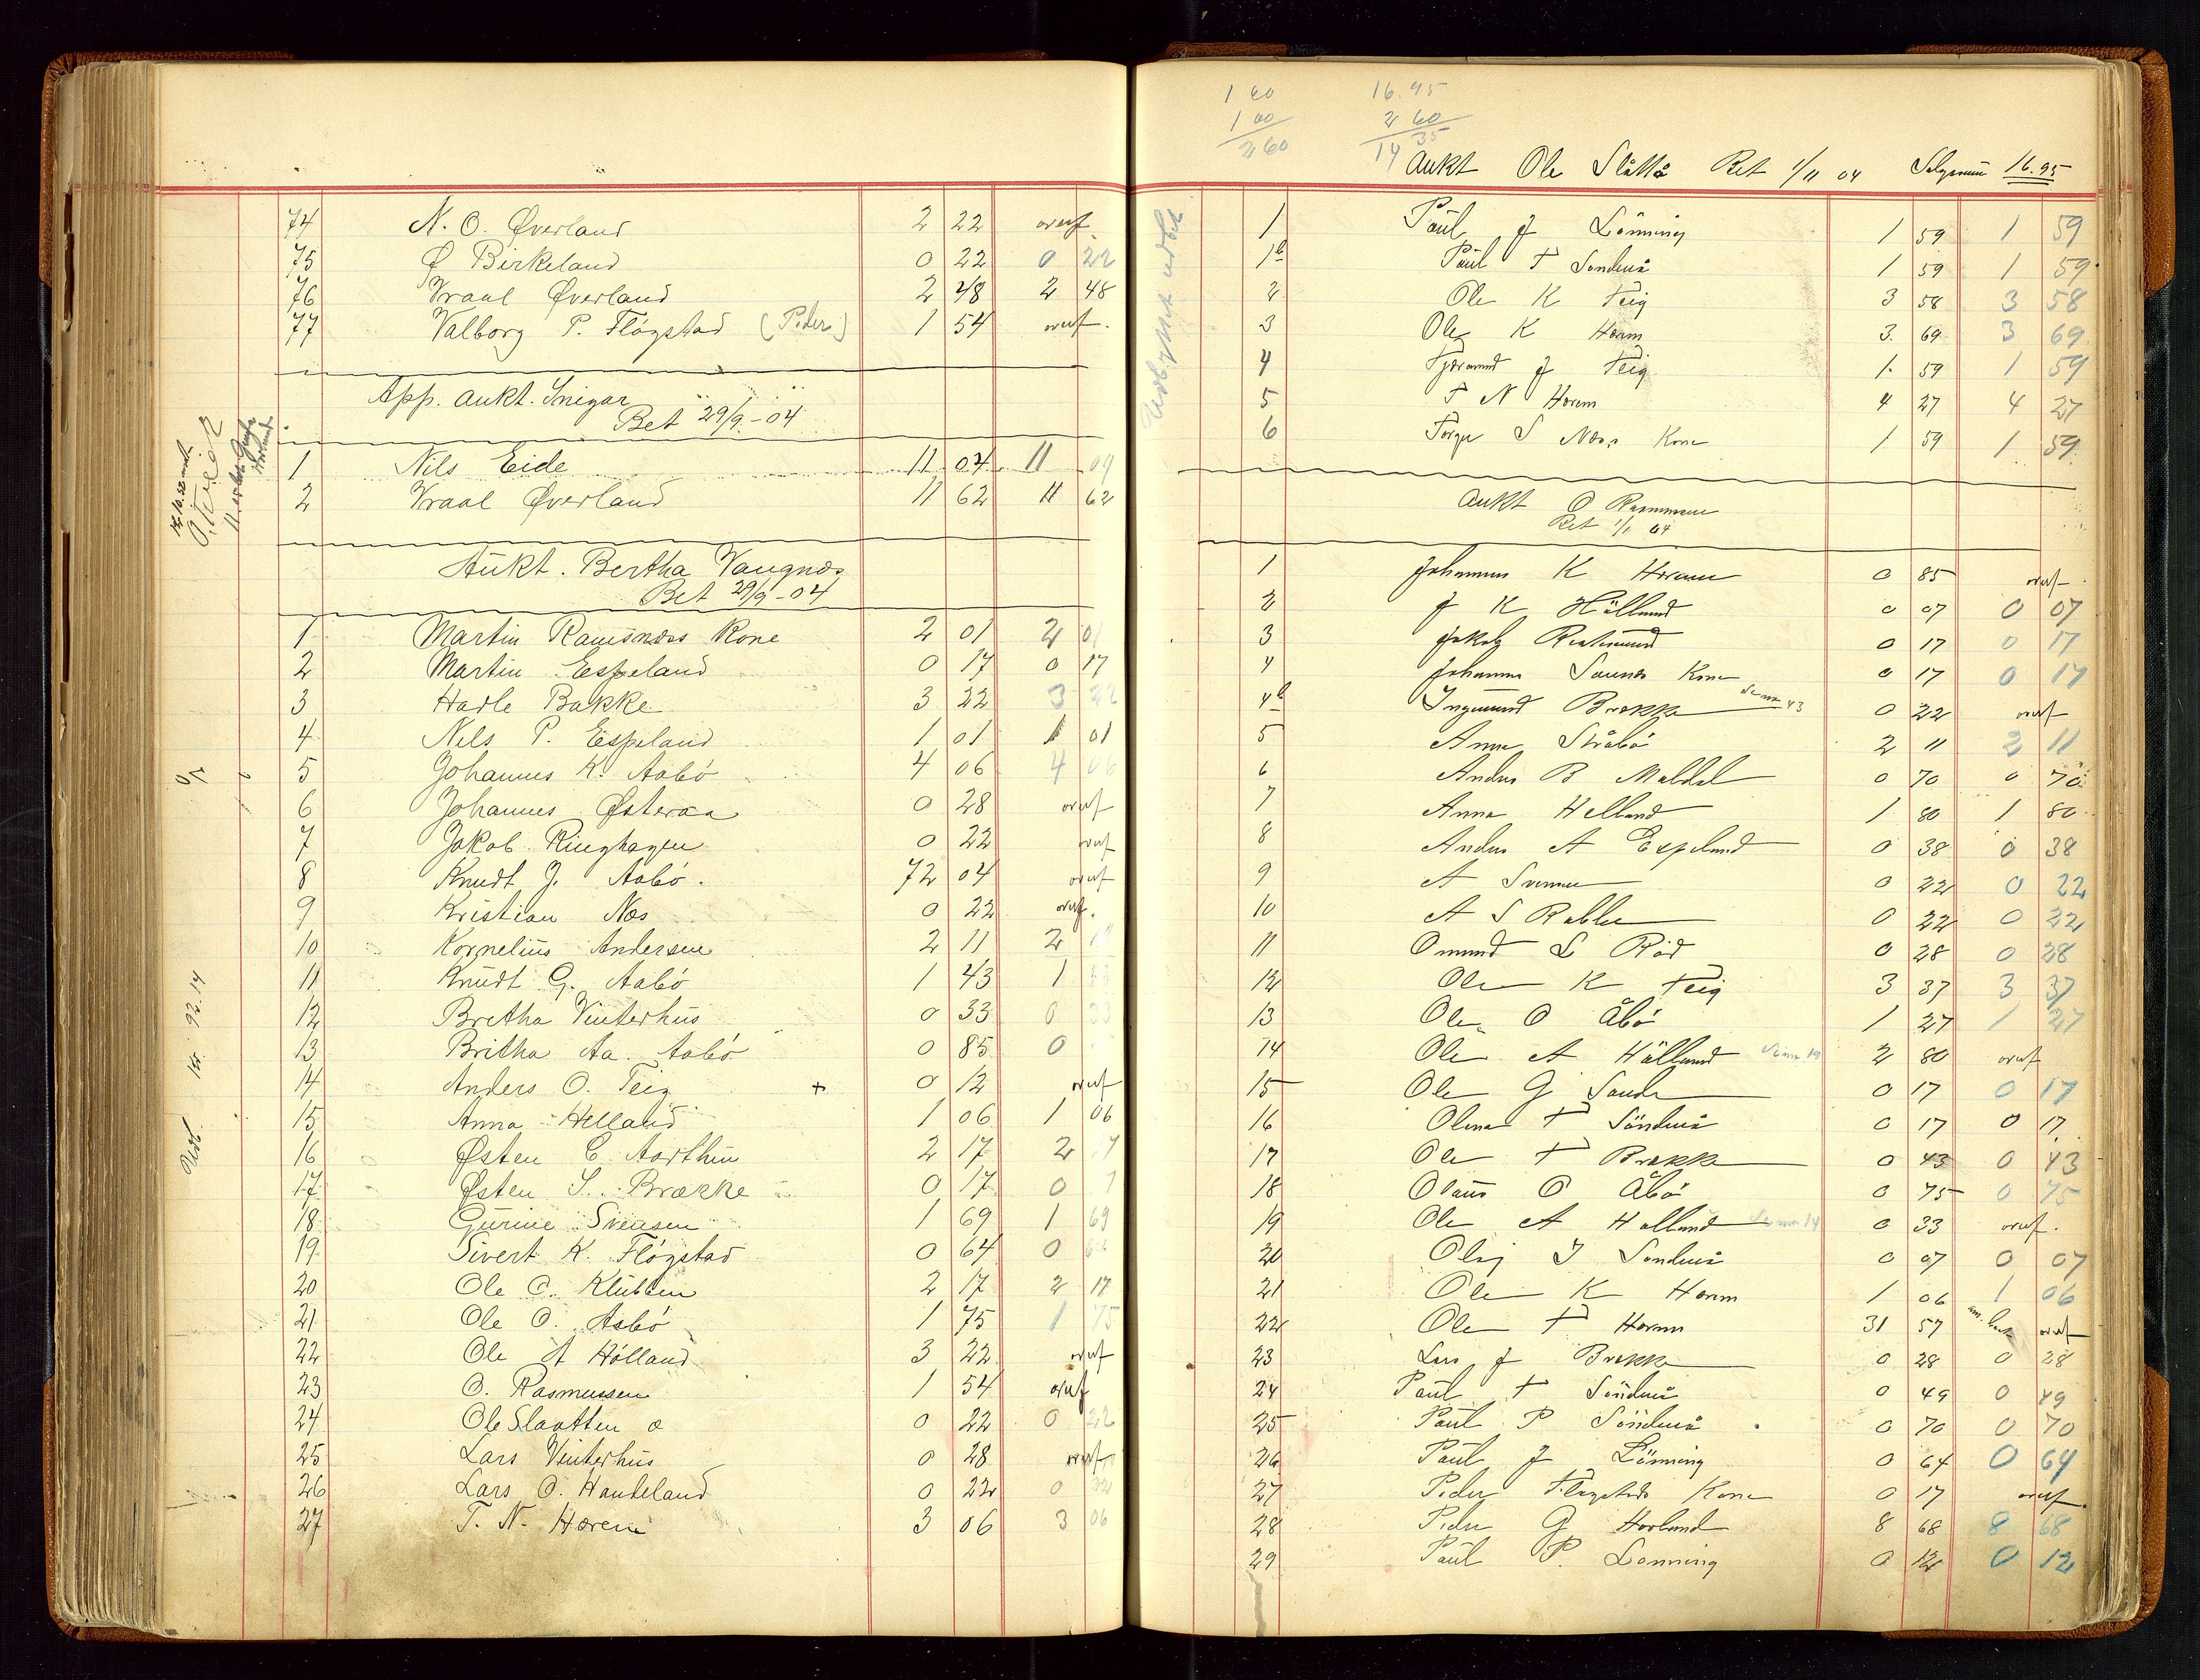 74 N. O. Øverland 2 22 overf.
75 Ø Birkeland 0 22 0 22
76 Vraal Øverland 2 48 2 48
77 Valborg P. Fløgstad (Peder) 1 54 overf.
App. Aukt.
Bet 29/9 - 04
1 Nils Eide 11 04 11 04
2 Vraal Øverland 11 62 11 62
Aukt. Bertha Vangnæs
Bet 29/9 - 04
1 Martin Ramsnæs Kone 2 01 2 01
2 Martin Espeland 0 17 0 17
3 Hadle Bakke 3 22 3 22
4 Nils P. Espeland 1 01 1 01
5 Johannes K. Aabö 4 06 4 06
6 Johannes Østeraa 0 28 overf
7 Jakob Ringhagen 0 22 overf
8 Knudt J. Aabö. 72 04 overf
9 Kristian Næs 0 22 overf.
10 Kornelius Andersen 2 11 2
11 Knudt G. Aabö 1 43 1
12 Bretha Vinterhus 0 33 0 33
13 Britha Aa. Aabö 0 85 0
14 Anders O. Teig + 0 12 overf
15 Anna Helland 1 06 1 06
16 Østen E. Aarthun 2 17 2
17 Østen S. Brække 0 17 0
18 Gurine Svensen 1 69 1 69
19 Sivert K. Flógstad 0 64 0
20 Ole O. Klubben 2 17 2 17
21 Ole O. Aabö 1 75 1 75
22 Ole A Hölland 3 22 overf
23 O. Rasmussen 1 54 overf
24 Ole Slaatten 0 22 0 22
25 Lars Vinterhus 0 28 overf
26 Lars O. Handeland 0 22 0 22
27 T. N. Hærem 3 06 3 06
Udb. 15. 92.14
1 60
1 00
2 60
16.95
2 60
14 35
Aukt Ole Slåttå Bet 1/11 04 16.95
1 Paul J Lönning 1 59 1 59
1b Paul T Sandnå 1 59 1 59
2 Ole K Teig 3 58 3 58
3 Ole K Hærm 3 69 3 69
4 J Teig 1 59 1 59
5 T N Hærem 4 27 4 27
6 Torger S Næs Kone 1 59 1 59
Aukt O Rasmussen
Bet 1/11 04
1 Johannes K Hærem 0 85 overf.
2 J K Hålland 0 07 0 07
3 Jakob 0 17 0 17
4 Johannes Kone 0 17 0 17
4b Ingmund Brække 0 22 overf
5 Anna Stråbö 2 11 2 11
6 Anders B Maldal 0 70 0 70
7 Anna Helland 1 80 1 80
8 Anders A Espeland 0 38 0 38
9 A Svensen 0 22 0 22
10 A S 0 22 0 22
11 Omund L Röd 0 28 0 28
12 Ole K Teig 3 37 3 37
13 Ole O Åbö 1 27 1 27
14 Ole A Hålland 2 80 overf
15 Ole G Sande 0 17 0 17
16 Olena T Söndenå 0 17 0 17
17 Ole T Brække 0 43 0 43
18 Olaus O Åbö 0 75 0 75
19 Ole A Halland 0 33 overf.
20 Olaj I Sandenå 0 07 0 07
21 Ole K Hærm 1 06 1 06
22 Ole T Hærm 31 57 overf
23 Lars J Brække 0 28 0 28
24 Paul T Söndenå 0 49 0 49
25 Paul P Söndenå 0 70 0 70
26 Paul J Lönning 0 64 0 64
27 Peder Flogstads Kone 0 17 overf.
28 Peder G Havland 8 68 8 68
29 Paul P. Lönning 0 12 0 12